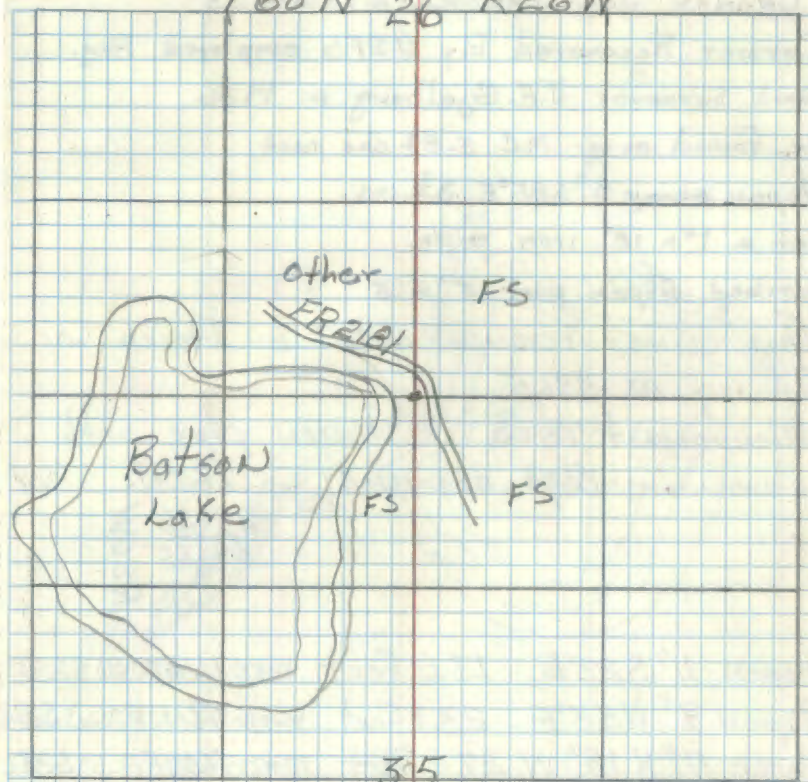 T60N 26 R26W
other
FS
FR2181
Batson
Lake
FS
FS
35